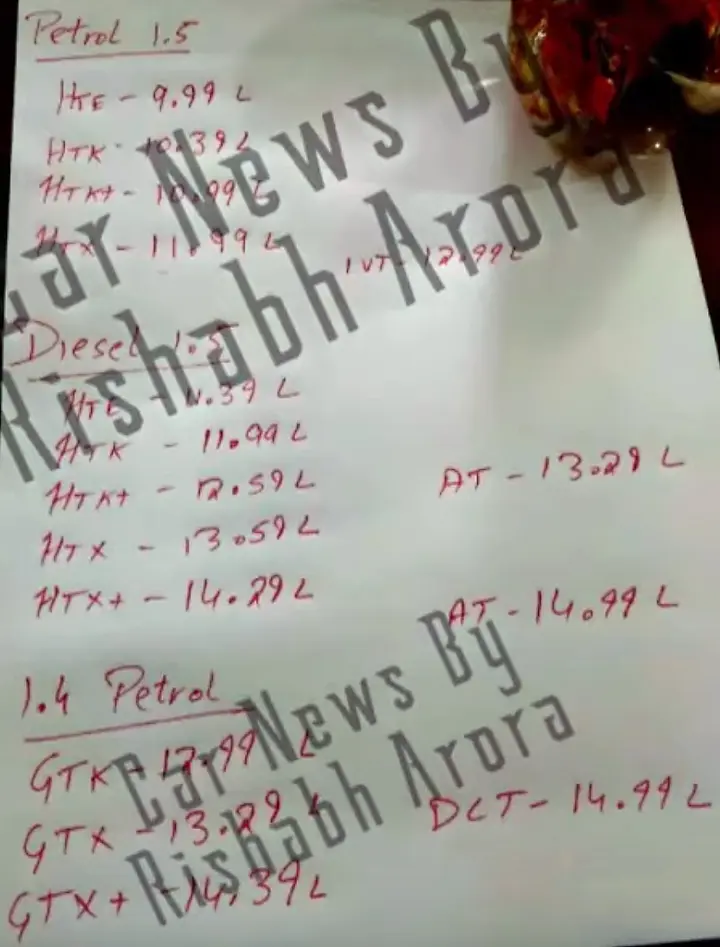 Petrol 1.5
HTE - 9.99 L
HTK - 10.39 L
HTK+ - 10.99 L
HTX - 11.99 L IVT - 12.99 L
Diesel 1.5
HTE - 11.39 L
HTK - 11.99 L
HTK+ - 12.59 L AT - 13.29 L
HTX - 13.59 L
HTX+ - 14.29 L AT - 14.99 L
1.4 Petrol
GTK - 12.99 L
GTX - 13.29 L DCT - 14.99 L
GTX+ - 14.39 L
Car News By
Rishabh Arora
Car News By
Rishabh Arora